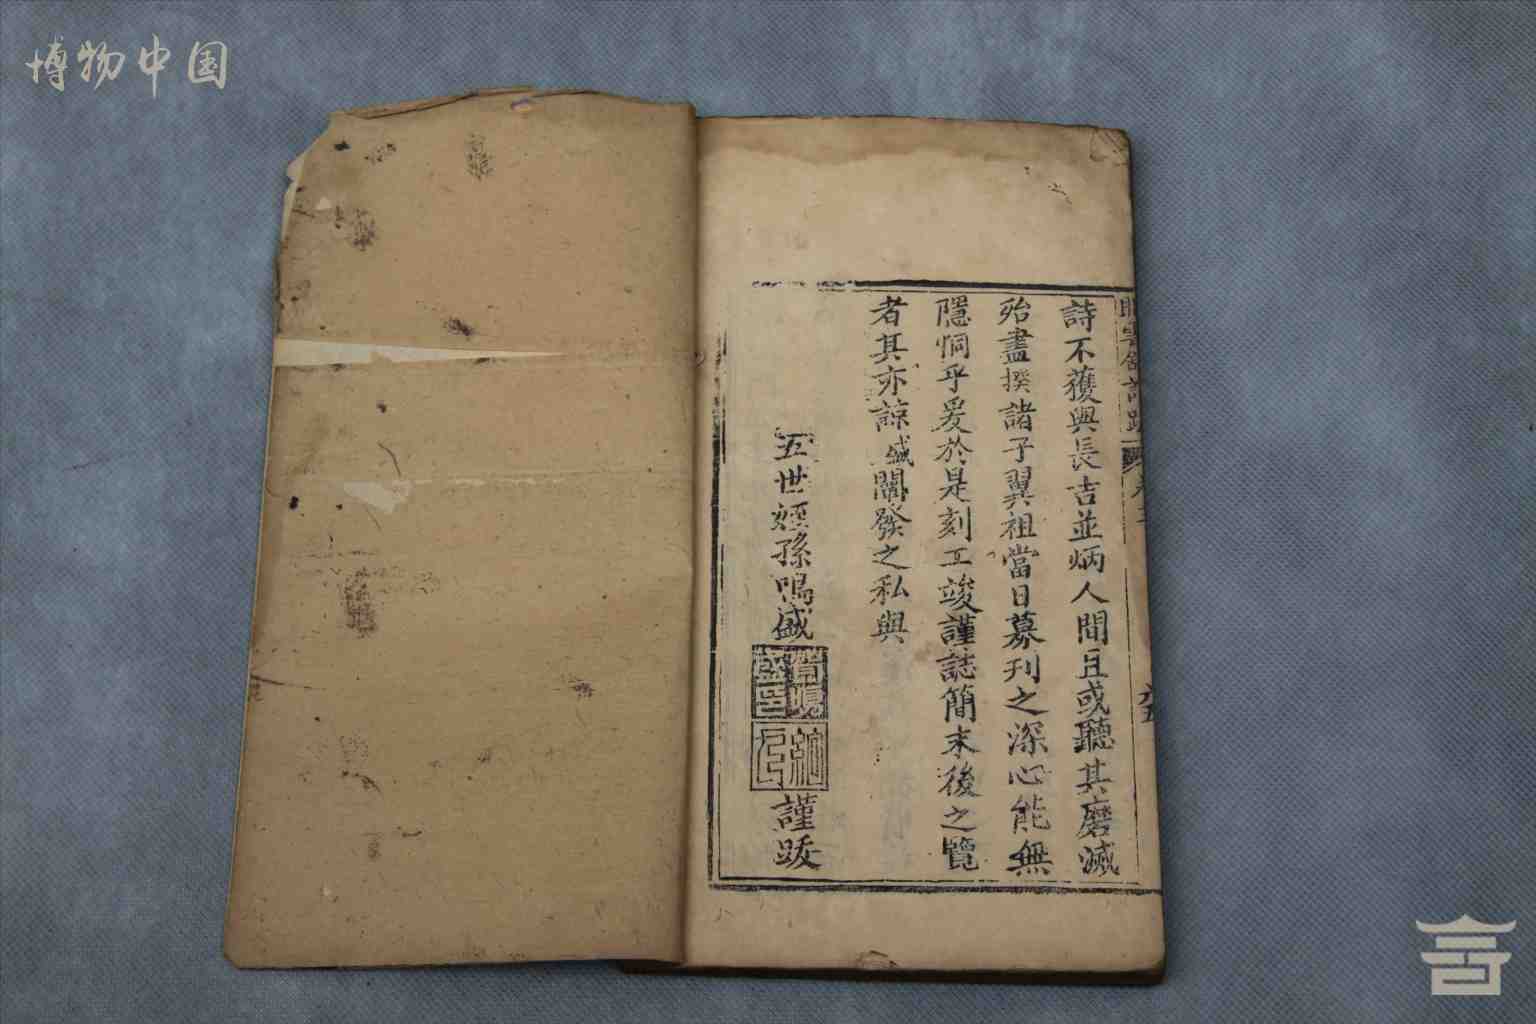 博物中国
詩不獲與長吉並炳人間且或聽其磨滅
殆盡揆諸子翼祖當日募刊之深心能無
隱恫乎爰於是刻工竣謹誌簡末後之覽
者其亦諒盛闡發之私與
五世姪孫鳴盛
謹跋